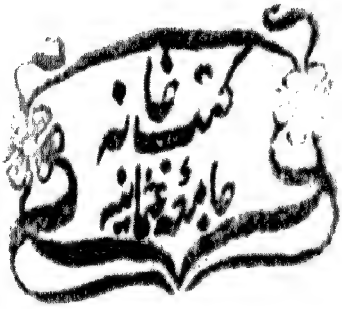 کتبخانہ
جامعہ عثمانیہ